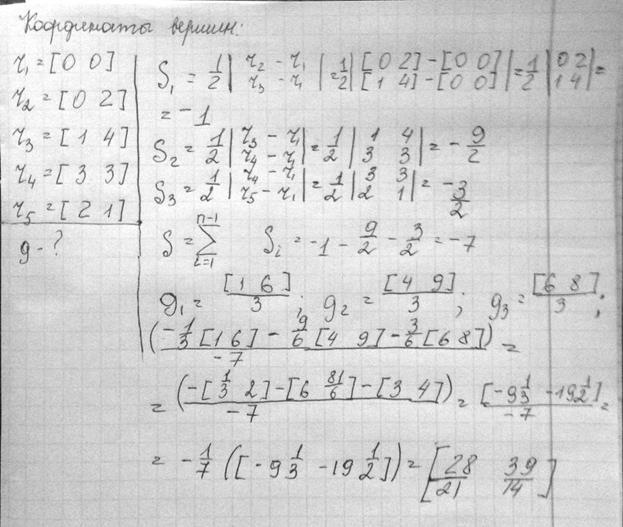 Координаты вершин:
r₁=[0 0]
r₂=[0 2]
r₃=[1 4]
r₄=[3 3]
r₅=[2 1]
g - ?
S₁ = 1/2 | r₂ - r₁ ; r₃ - r₁ | = 1/2 | [0 2]-[0 0] ; [1 4]-[0 0] | = 1/2 | 0 2 ; 1 4 | =
= -1
S₂ = 1/2 | r₃ - r₁ ; r₄ - r₁ | = 1/2 | 1 4 ; 3 3 | = - 9/2
S₃ = 1/2 | r₄ - r₁ ; r₅ - r₁ | = 1/2 | 3 3 ; 2 1 | = - 3/2
S = ∑ i=1 n-1 Sᵢ = -1 - 9/2 - 3/2 = -7
g₁ = [1 6]/3 ; g₂ = [4 9]/3 ; g₃ = [6 8]/3 ;
(-1/3 [1 6] - 9/6 [4 9] - 3/6 [6 8]) / -7 =
= (-[1/3 2] - [6 81/6] - [3 4]) / -7 = [-9 1/3 -19 1/2] / -7 =
= -1/7 ([-9 1/3 -19 1/2]) = [28/21 39/14]